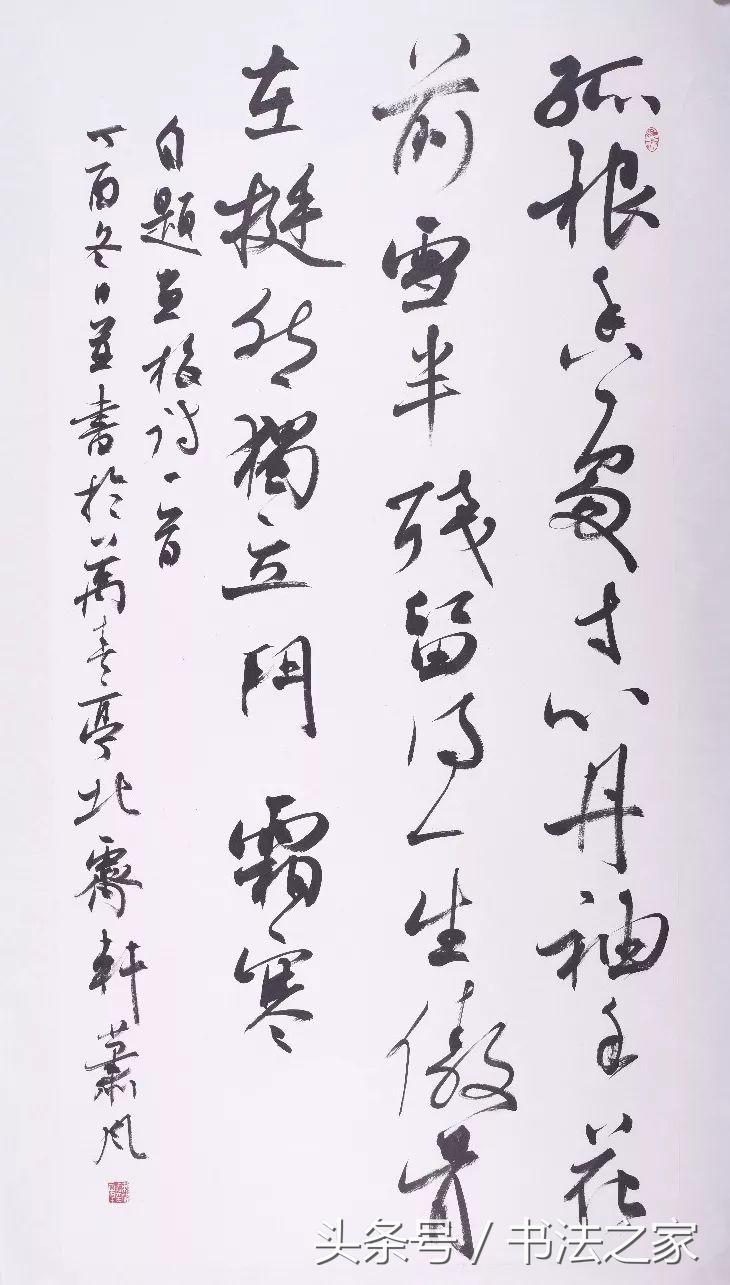 孤根香處寸心丹袖手花
前雪半殘留得一生傲骨
在挺然獨立鬥霜寒
自題畫梅詩一首
丁酉冬日並書於萬春亭北霽軒蕭風
头条号 / 书法之家